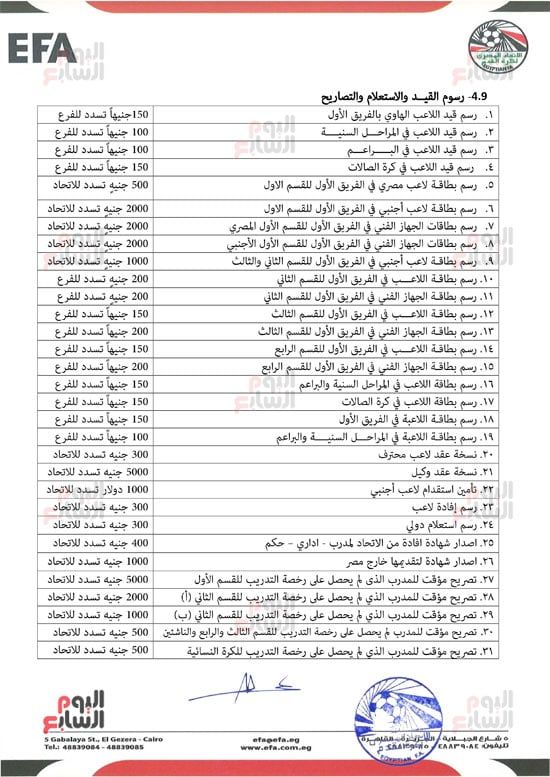 EFA
الاتحاد المصري
لكرة القدم
EGYPTIAN F.A.
اليوم السابع
4.9- رسوم القيـد والاستعلام والتصاريح
١. رسم قيد اللاعب الهاوي بالفريق الأول 150جنيهاً تسدد للفرع
٢. رسم قيد اللاعب في المراحـل السنيـة 100 جنيهاً تسدد للفرع
٣. رسم قيد اللاعب في البـراعـم 100 جنيهاً تسدد للفرع
٤. رسم قيد اللاعب في كرة الصالات 150جنيهاً تسدد للفرع
٥. رسم بطاقـة لاعب مصري في الفريق الأول للقسم الاول 500 جنيهٍ تسدد للاتحاد
٦. رسم بطاقـة لاعب أجنبي في الفريق الأول للقسم الاول 2000 جنيهٍ تسدد للاتحاد
٧. رسم بطاقات الجهاز الفني في الفريق الأول للقسم الأول المصري 2000 جنيه تسدد للاتحاد
٨. رسم بطاقات الجهاز الفني في الفريق الأول للقسم الأول الأجنبي 2000 جنيه تسدد للاتحاد
٩. رسم بطاقـة لاعب أجنبي في الفريق الأول للقسم الثاني والثالث 1000 جنيه تسدد للاتحاد
١٠. رسم بطاقـة اللاعـب في الفريق الأول للقسم الثاني 200 جنيهٍ تسدد للفرع
١١. رسم بطاقـة الجهاز الفني في الفريق الأول للقسم الثاني 200 جنيهٍ تسدد للفرع
١٢. رسم بطاقـة اللاعـب في الفريق الأول للقسم الثالث 150 جنيهاً تسدد للفرع
١٣. رسم بطاقـة الجهاز الفني في الفريق الأول للقسم الثالث 200 جنيهاً تسدد للفرع
١٤. رسم بطاقـة اللاعـب في الفريق الأول للقسم الرابع 150 جنيهاً تسدد للفرع
١٥. رسم بطاقـة الجهاز الفني في الفريق الأول للقسم الرابع 200 جنيهاً تسدد للفرع
١٦. رسم بطاقة اللاعب في المراحل السنية والبراعم 100 جنيهاً تسدد للفرع
١٧. رسم بطاقة اللاعب في كرة الصالات 150 جنيهاً تسدد للفرع
١٨. رسم بطاقـة اللاعبة في الفريق الأول 150 جنيهاً تسدد للفرع
١٩. رسم بطاقـة اللاعبة في المراحـل السنيـة والبراعم 100 جنيهاً تسدد للفرع
٢٠. نسخة عقد لاعب محترف 300 جنيه تسدد للاتحاد
٢١. نسخة عقد وكيل 5000 جنيه تسدد للاتحاد
٢٢. تأمين استقدام لاعب أجنبي 1000 دولار تسدد للاتحاد
٢٣. رسم إفادة لاعب 300 جنيه تسدد للاتحاد
٢٤. رسم استعلام دولي 300 جنيه تسدد للاتحاد
٢٥. اصدار شهادة افادة من الاتحاد لمدرب - اداري – حكم 400 جنيه تسدد للاتحاد
٢٦. اصدار شهادة لتقديمها خارج مصر 1000 جنيه تسدد للاتحاد
٢٧. تصريح مؤقت للمدرب الذى لم يحصل على رخصة التدريب للقسم الأول 5000 جنيه تسدد للاتحاد
٢٨. تصريح مؤقت للمدرب الذي لم يحصل على رخصة التدريب للقسم الثاني (أ) 2000 جنيه تسدد للاتحاد
٢٩. تصريح مؤقت للمدرب الذي لم يحصل على رخصة التدريب للقسم الثاني (ب) 1000 جنيه تسدد للاتحاد
٣٠. تصريح مؤقت للمدرب لم يحصل على رخصة التدريب للقسم الثالث والرابع والناشئين 500 جنيه تسدد للاتحاد
٣١. تصريح مؤقت للمدرب الذي لم يحصل على رخصة التدريب للكرة النسائية 500 جنيه تسدد للاتحاد
اليوم السابع
5 Gabalaya St., El Gezera - Cairo
Tel.: 48839084 - 48839085
efa@efa.eg
www.efa.com.eg
EGYPTIAN F.A.
٥ شارع الجبلاية - الجزيرة - القاهرة